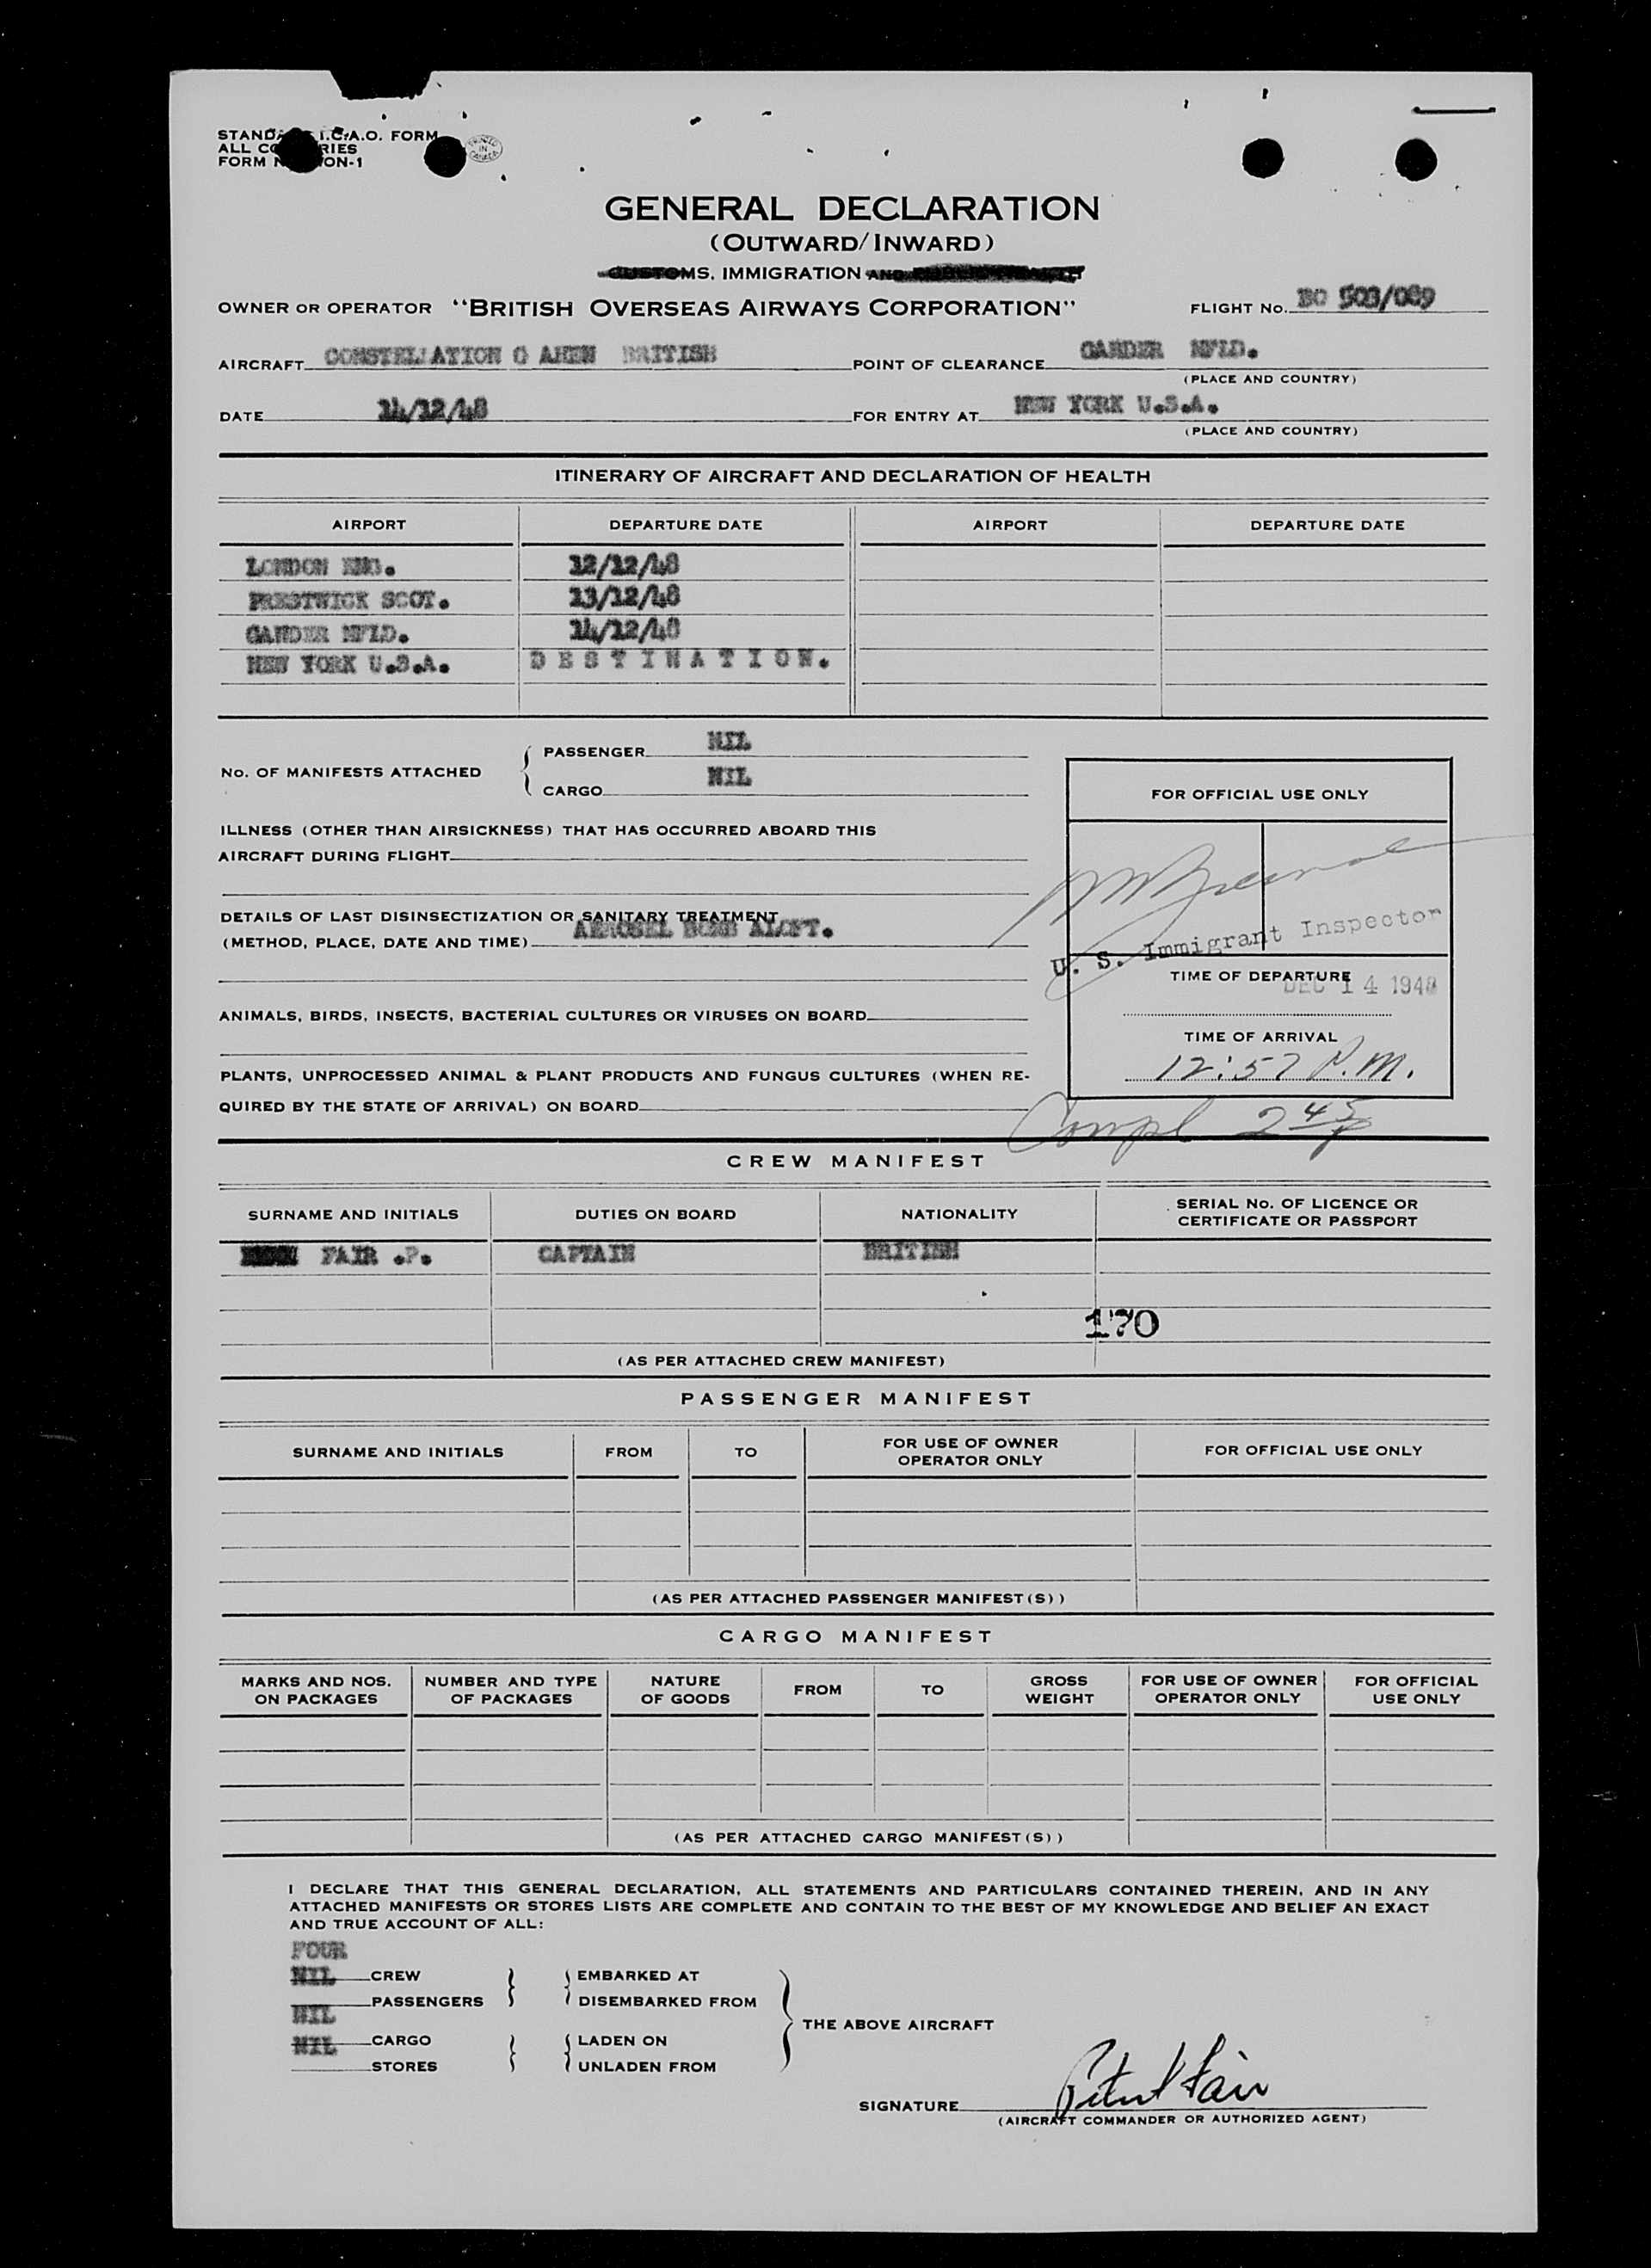 STANDARD I.C.A.O. FORM
ALL COUNTRIES
FORM ON-1
PRINTED IN CANADA
GENERAL DECLARATION
(OUTWARD/INWARD)
CUSTOMS, IMMIGRATION AND PUBLIC HEALTH
OWNER OR OPERATOR "BRITISH OVERSEAS AIRWAYS CORPORATION" FLIGHT No. BO 503/089
AIRCRAFT CONSTELLATION G AHEN BRITISH POINT OF CLEARANCE GANDER NFLD.
(PLACE AND COUNTRY)
DATE 14/12/48 FOR ENTRY AT NEW YORK U.S.A.
(PLACE AND COUNTRY)
ITINERARY OF AIRCRAFT AND DECLARATION OF HEALTH
AIRPORT DEPARTURE DATE AIRPORT DEPARTURE DATE
LONDON ENG. 12/12/48
PRESTWICK SCOT. 13/12/48
GANDER NFLD. 14/12/48
NEW YORK U.S.A. DESTINATION.
No. OF MANIFESTS ATTACHED { PASSENGER NIL
CARGO NIL
FOR OFFICIAL USE ONLY
ILLNESS (OTHER THAN AIRSICKNESS) THAT HAS OCCURRED ABOARD THIS
AIRCRAFT DURING FLIGHT
DETAILS OF LAST DISINSECTIZATION OR SANITARY TREATMENT
(METHOD, PLACE, DATE AND TIME) AEROSEL BOMB ALOFT.
U. S. Immigrant Inspector
TIME OF DEPARTURE
DEC 14 1948
ANIMALS, BIRDS, INSECTS, BACTERIAL CULTURES OR VIRUSES ON BOARD
TIME OF ARRIVAL
12:57 P.M.
PLANTS, UNPROCESSED ANIMAL & PLANT PRODUCTS AND FUNGUS CULTURES (WHEN RE-
QUIRED BY THE STATE OF ARRIVAL) ON BOARD
Compl 2 45 P
CREW MANIFEST
SURNAME AND INITIALS DUTIES ON BOARD NATIONALITY SERIAL No. OF LICENCE OR
CERTIFICATE OR PASSPORT
FAIR .P. CAPTAIN BRITISH
170
(AS PER ATTACHED CREW MANIFEST)
PASSENGER MANIFEST
SURNAME AND INITIALS FROM TO FOR USE OF OWNER
OPERATOR ONLY FOR OFFICIAL USE ONLY
(AS PER ATTACHED PASSENGER MANIFEST(S))
CARGO MANIFEST
MARKS AND NOS. NUMBER AND TYPE NATURE FROM TO GROSS FOR USE OF OWNER FOR OFFICIAL
ON PACKAGES OF PACKAGES OF GOODS WEIGHT OPERATOR ONLY USE ONLY
(AS PER ATTACHED CARGO MANIFEST(S))
I DECLARE THAT THIS GENERAL DECLARATION, ALL STATEMENTS AND PARTICULARS CONTAINED THEREIN, AND IN ANY
ATTACHED MANIFESTS OR STORES LISTS ARE COMPLETE AND CONTAIN TO THE BEST OF MY KNOWLEDGE AND BELIEF AN EXACT
AND TRUE ACCOUNT OF ALL:
FOUR
NIL CREW EMBARKED AT
NIL PASSENGERS DISEMBARKED FROM
THE ABOVE AIRCRAFT
NIL CARGO LADEN ON
STORES UNLADEN FROM
SIGNATURE Peter Fair
(AIRCRAFT COMMANDER OR AUTHORIZED AGENT)